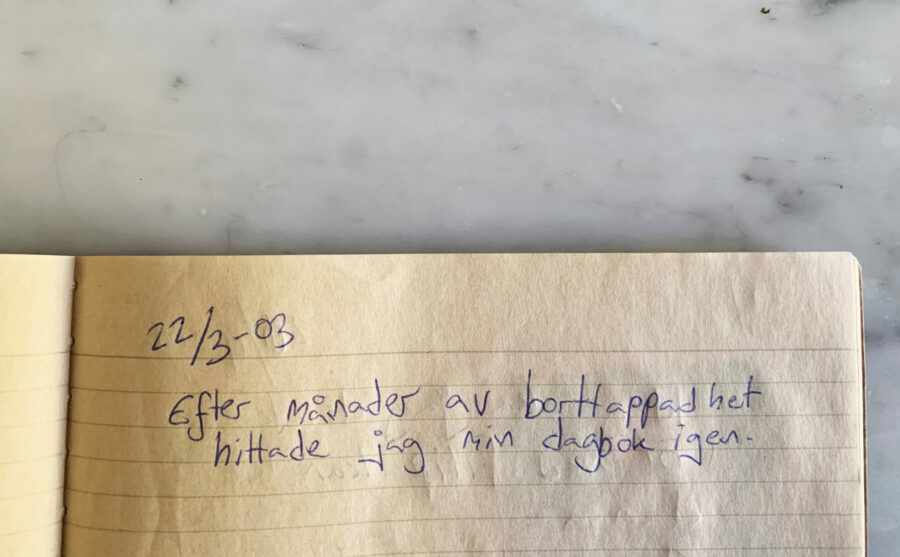 22/3-03
Efter månader av borttappadhet
hittade jag min dagbok igen.